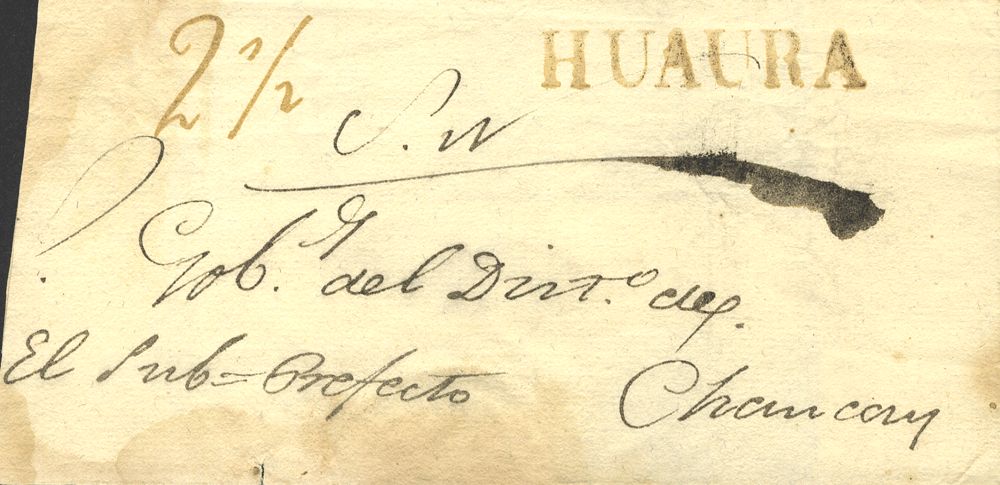 2 1/2
HUAURA
S. N
Gob.r del Dist.o de
El Sub=Prefecto
Chancay